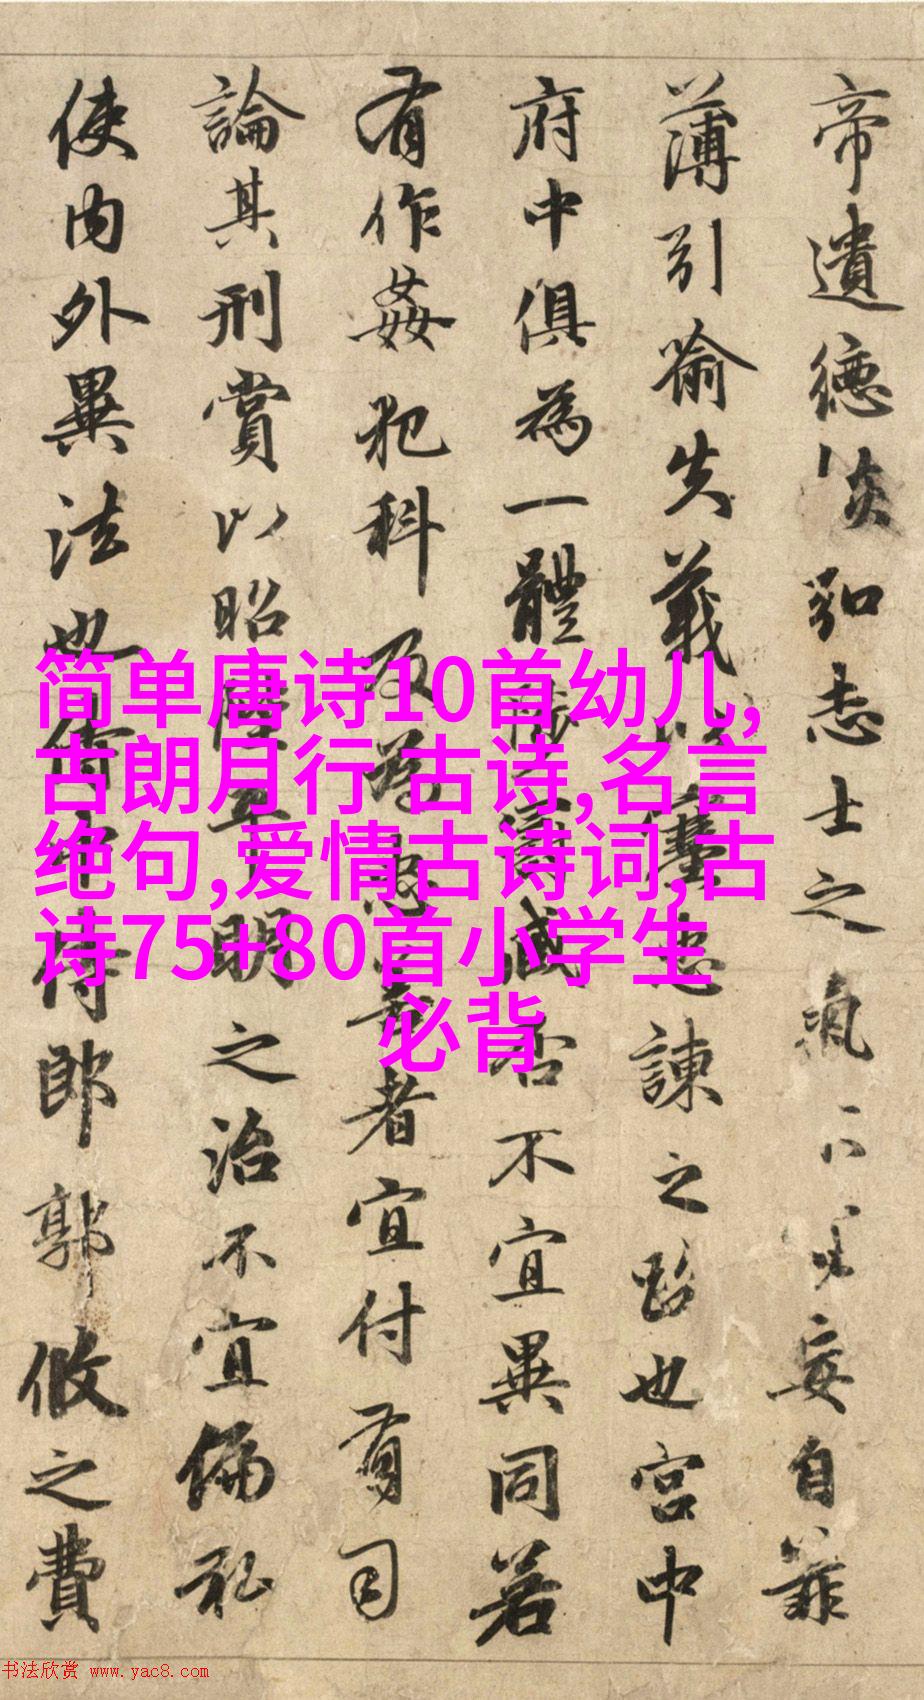 帝遺德弘志士之氣妄自菲
薄引喻失義以塞忠諫之路也宮中
府中俱為一體陟罰臧否不宜異同若
有作姦犯科及為忠善者宜付有司
論其刑賞以昭陛平明之治不宜偏私
使內外異法也侍中侍郎郭攸之費
简单唐诗10首幼儿,
古朗月行 古诗,名言
绝句,爱情古诗词,古
诗75+80首小学生
必背
书法欣赏 www.yac8.com